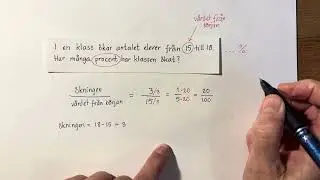 värdet från
början
I en klass ökar antalet elever från 15 till 18.
Hur många procent har klassen ökat?
... %
ökningen / värdet från början = 3/3 / 15/3 = 1·20 / 5·20 = 20 / 100
ökningen = 18-15 = 3